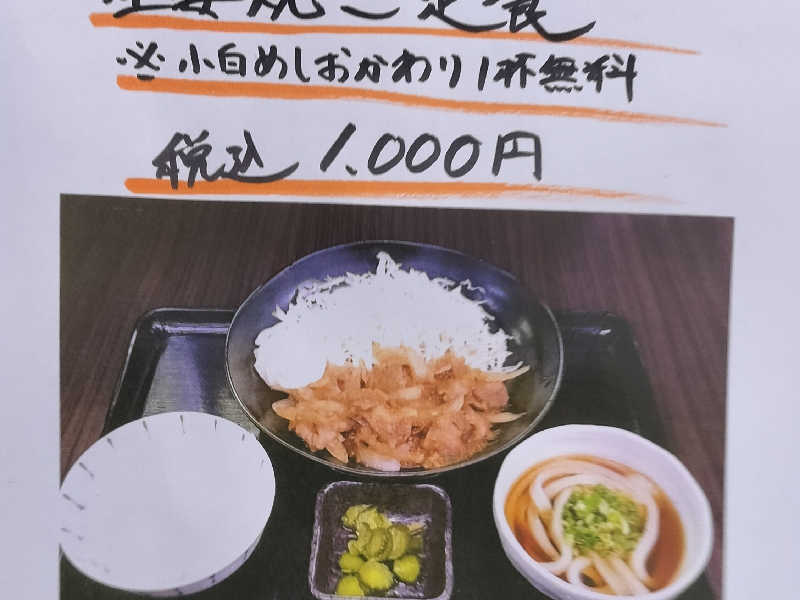 生姜焼き定食
※小白めしおかわり1杯無料
税込 1,000円